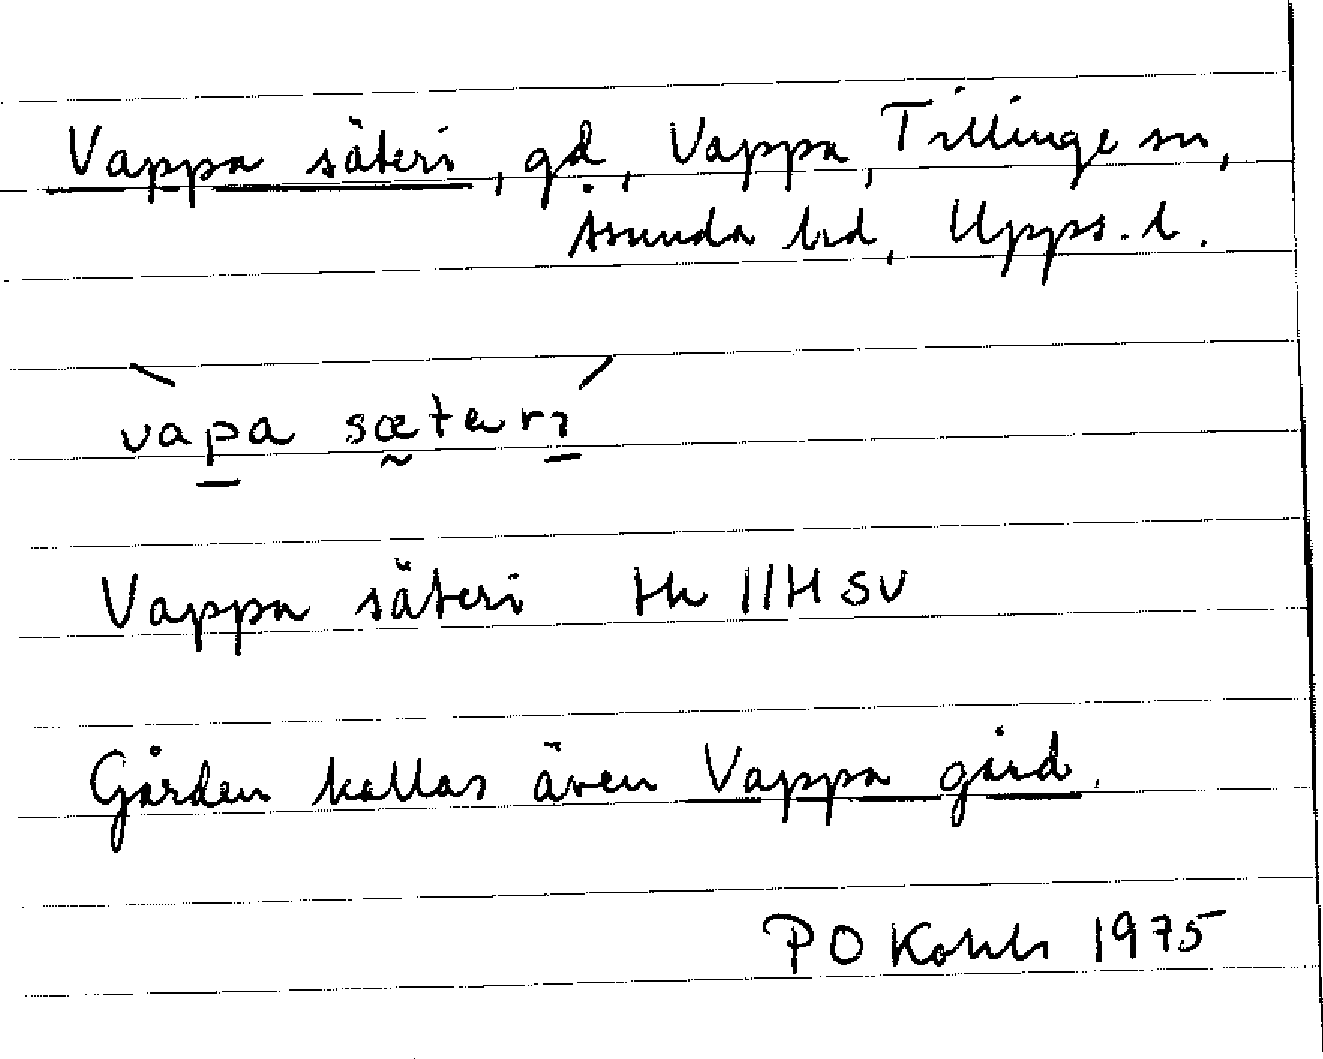 Vappa säteri, gd, Vappa, Tillinge sn,
Åsunda hd, Upps. l.
vapa sæteri
Vappa säteri Hk 11H SV
Gården kallas även Vappa gård.
P O 1975